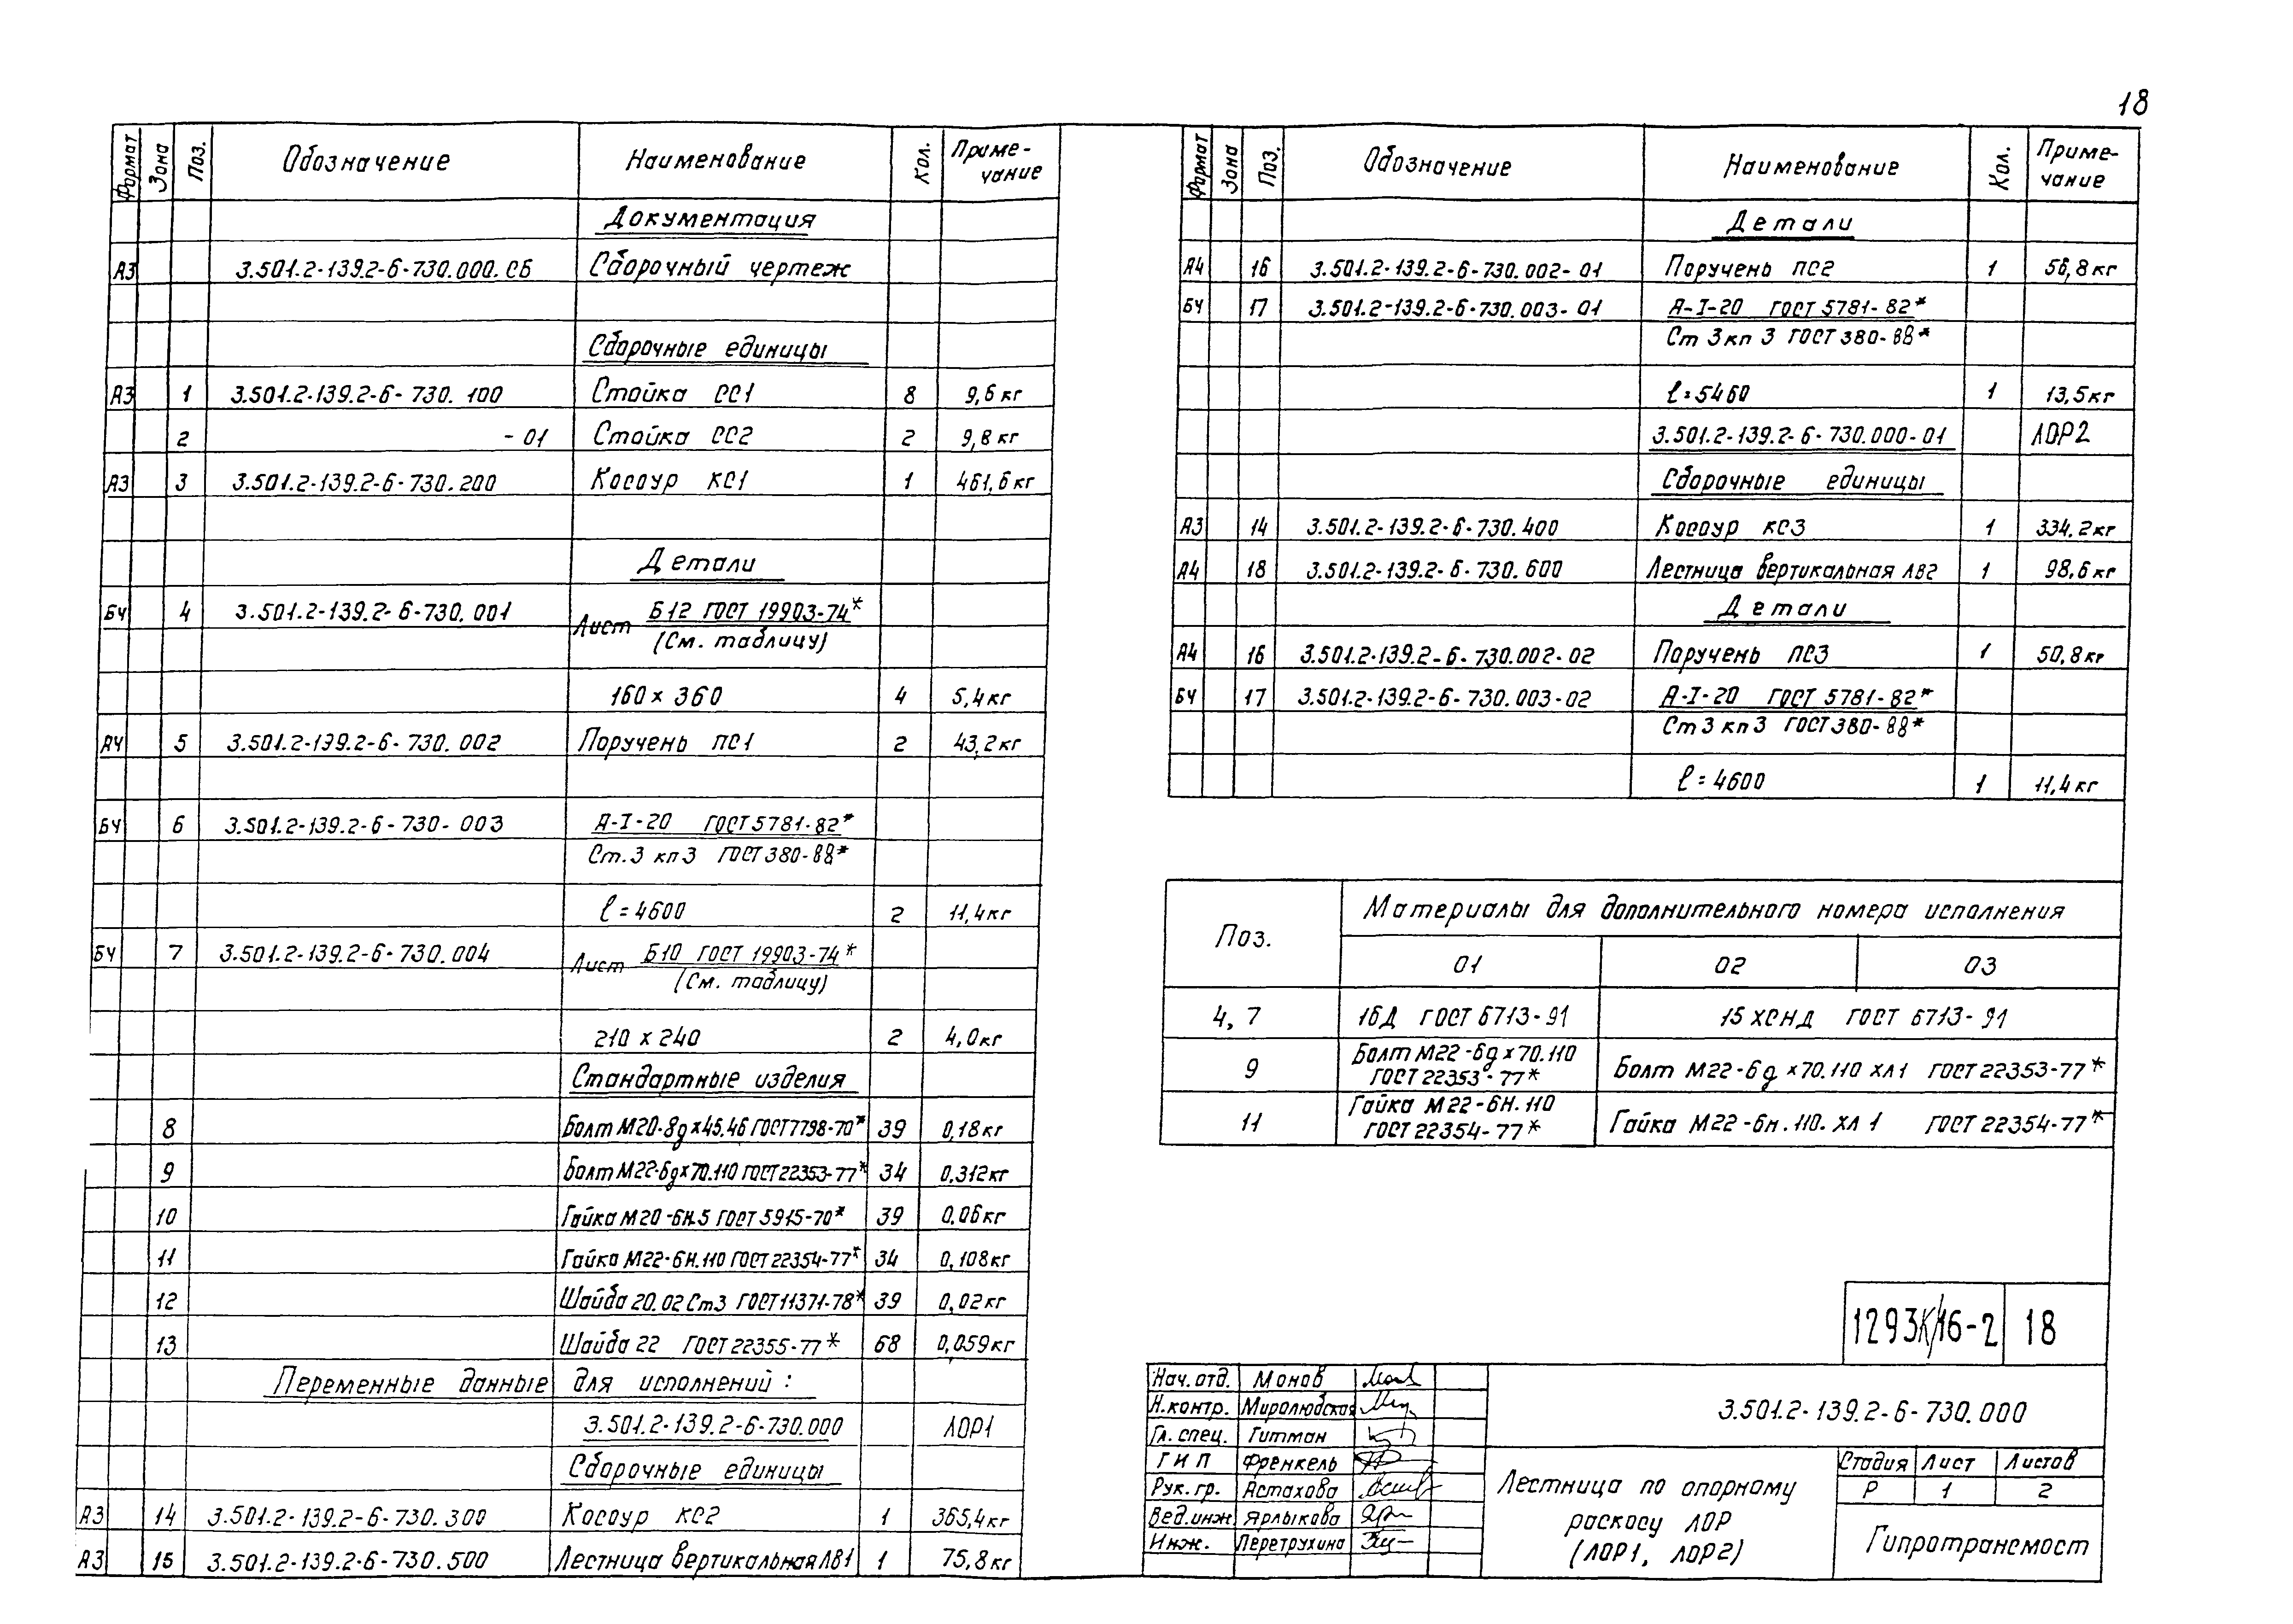 18
Формат Зона Поз. Обозначение Наименование Кол. Приме-
чание
Документация
А3 3.501.2-139.2-6-730.000.СБ Сборочный чертеж
Сборочные единицы
А3 1 3.501.2-139.2-6-730.100 Стойка СС1 8 9,6 кг
2 -01 Стойка СС2 2 9,8 кг
А3 3 3.501.2-139.2-6-730.200 Косоур КС1 1 461,6 кг
Детали
БЧ 4 3.501.2-139.2-6-730.001 Лист Б12 ГОСТ 19903-74*
(См. таблицу)
160 х 360 4 5,4 кг
А4 5 3.501.2-139.2-6-730.002 Поручень ПС1 2 43,2 кг
БЧ 6 3.501.2-139.2-6-730-003 А-I-20 ГОСТ 5781-82*
Ст.3 кп3 ГОСТ 380-88*
ℓ=4600 2 11,4 кг
БЧ 7 3.501.2-139.2-6-730.004 Лист Б10 ГОСТ 19903-74*
(См. таблицу)
210 х 240 2 4,0 кг
Стандартные изделия
8 Болт М20-8gх45.46 ГОСТ 7798-70* 39 0,18 кг
9 Болт М22-6gх70.110 ГОСТ 22353-77* 34 0,312 кг
10 Гайка М20-6Н.5 ГОСТ 5915-70* 39 0,06 кг
11 Гайка М22-6Н.110 ГОСТ 22354-77* 34 0,108 кг
12 Шайба 20.02 Ст3 ГОСТ 11371-78* 39 0,02 кг
13 Шайба 22 ГОСТ 22355-77* 68 0,059 кг
Переменные данные для исполнений:
3.501.2-139.2-6-730.000 ЛОР1
Сборочные единицы
А3 14 3.501.2-139.2-6-730.300 Косоур КС2 1 365,4 кг
А3 15 3.501.2-139.2-6-730.500 Лестница вертикальная ЛВ1 1 75,8 кг
Формат Зона Поз. Обозначение Наименование Кол. Приме-
чание
Детали
А4 16 3.501.2-139.2-6-730.002-01 Поручень ПС2 1 56,8 кг
БЧ 17 3.501.2-139.2-6-730.003-01 А-I-20 ГОСТ 5781-82*
Ст 3 кп 3 ГОСТ 380-88*
ℓ=5460 1 13,5 кг
3.501.2-139.2-6-730.000-01 ЛОР2
Сборочные единицы
А3 14 3.501.2-139.2-6-730.400 Косоур КС3 1 334.2 кг
А4 18 3.501.2-139.2-6-730.600 Лестница вертикальная ЛВ2 1 98,6 кг
Детали
А4 16 3.501.2-139.2-6-730.002-02 Поручень ПС3 1 50,8 кг
БЧ 17 3.501.2-139.2-6-730.003-02 А-I-20 ГОСТ 5781-82*
Ст 3 кп 3 ГОСТ 380-88*
ℓ=4600 1 11,4 кг
Поз. Материалы для дополнительного номера исполнения
01 02 03
4, 7 16Д ГОСТ 6713-91 15 ХСНД ГОСТ 6713-91
9 Болт М22-6gх70.110
ГОСТ 22353-77* Болт М22-6gх70.110 ХЛ1 ГОСТ 22353-77*
11 Гайка М22-6Н.110
ГОСТ 22354-77* Гайка М22-6н.110.ХЛ 1 ГОСТ 22354-77*
1293К/16-2 18
Нач. отд. Монов
Н.контр. Миролюбская
Гл. спец. Гитман
ГИП Френкель
Рук. гр. Астахова
Вед.инж Ярлыкова
Инж. Перетрухина
3.501.2-139.2-6-730.000
Лестница по опорному
раскосу ЛОР
(ЛОР1, ЛОР2)
Стадия Лист Листов
Р 1 2
Гипротрансмост